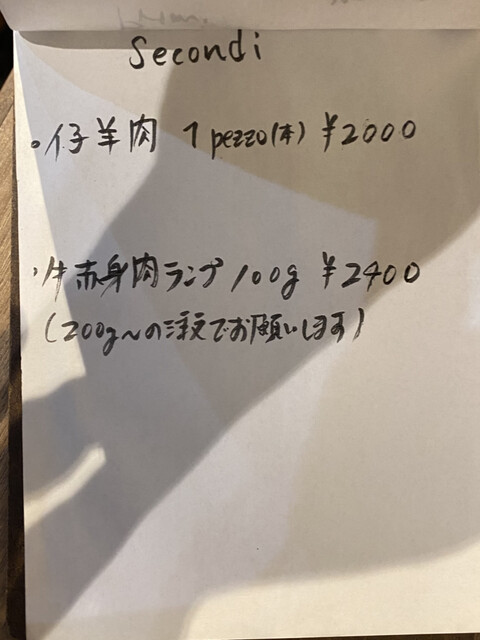 Secondi
・仔羊肉 1 pezzo(本) ¥2000
・牛赤身肉ランプ 100g ¥2400
(200g〜の注文でお願いします)